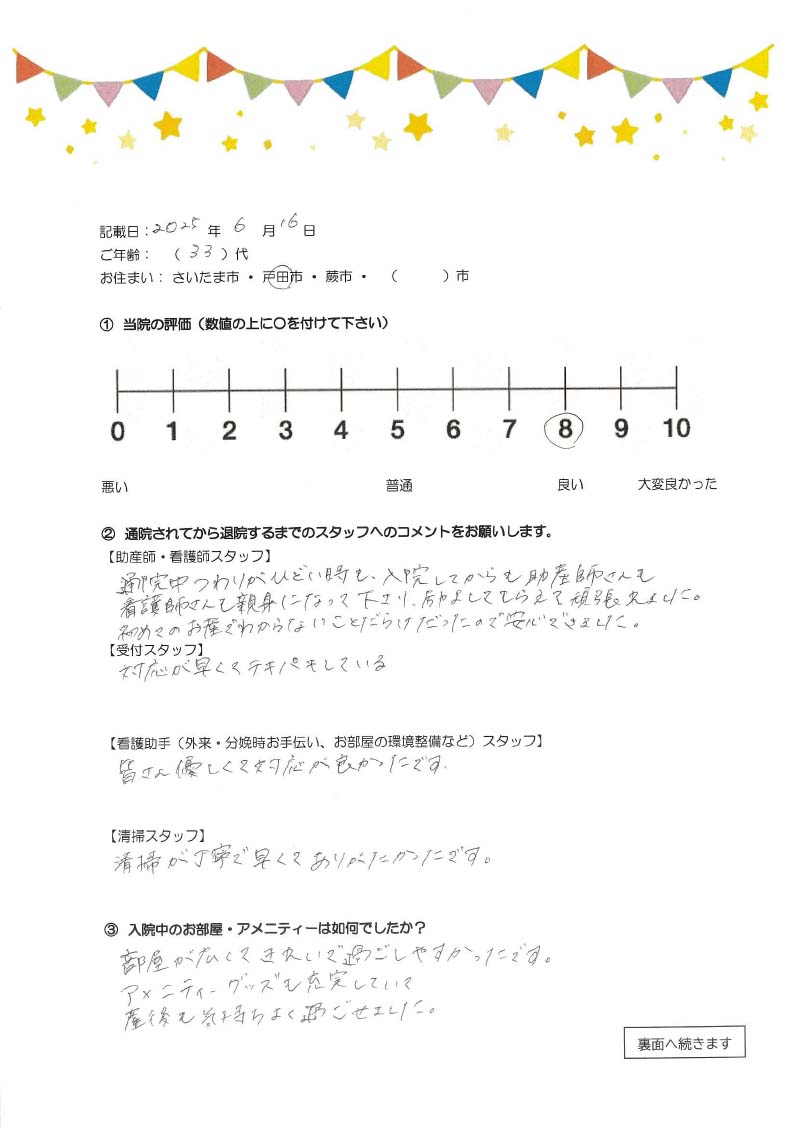 記載日：2025年 6月 16日
ご年齢： （ 33 ）代
お住まい： さいたま市 ・ 戸田市 ・ 蕨市 ・ （ ）市
① 当院の評価（数値の上に〇を付けて下さい）
0 1 2 3 4 5 6 7 8 9 10
悪い 普通 良い 大変良かった
② 通院されてから退院するまでのスタッフへのコメントをお願いします。
【助産師・看護師スタッフ】
通院中つわりがひどい時も、入院してからも助産師さんも
看護師さんも親身になって下さり、励ましてもらえて頑張れました。
初めてのお産でわからないことだらけだったので安心できました。
【受付スタッフ】
対応が早くてテキパキしている
【看護助手（外来・分娩時お手伝い、お部屋の環境整備など）スタッフ】
皆さん優しくて対応が良かったです。
【清掃スタッフ】
清掃が丁寧で早くてありがたかったです。
③ 入院中のお部屋・アメニティーは如何でしたか？
部屋が広くてきれいで過ごしやすかったです。
アメニティーグッズも充実していて
産後も気持ちよく過ごせました。
裏面へ続きます